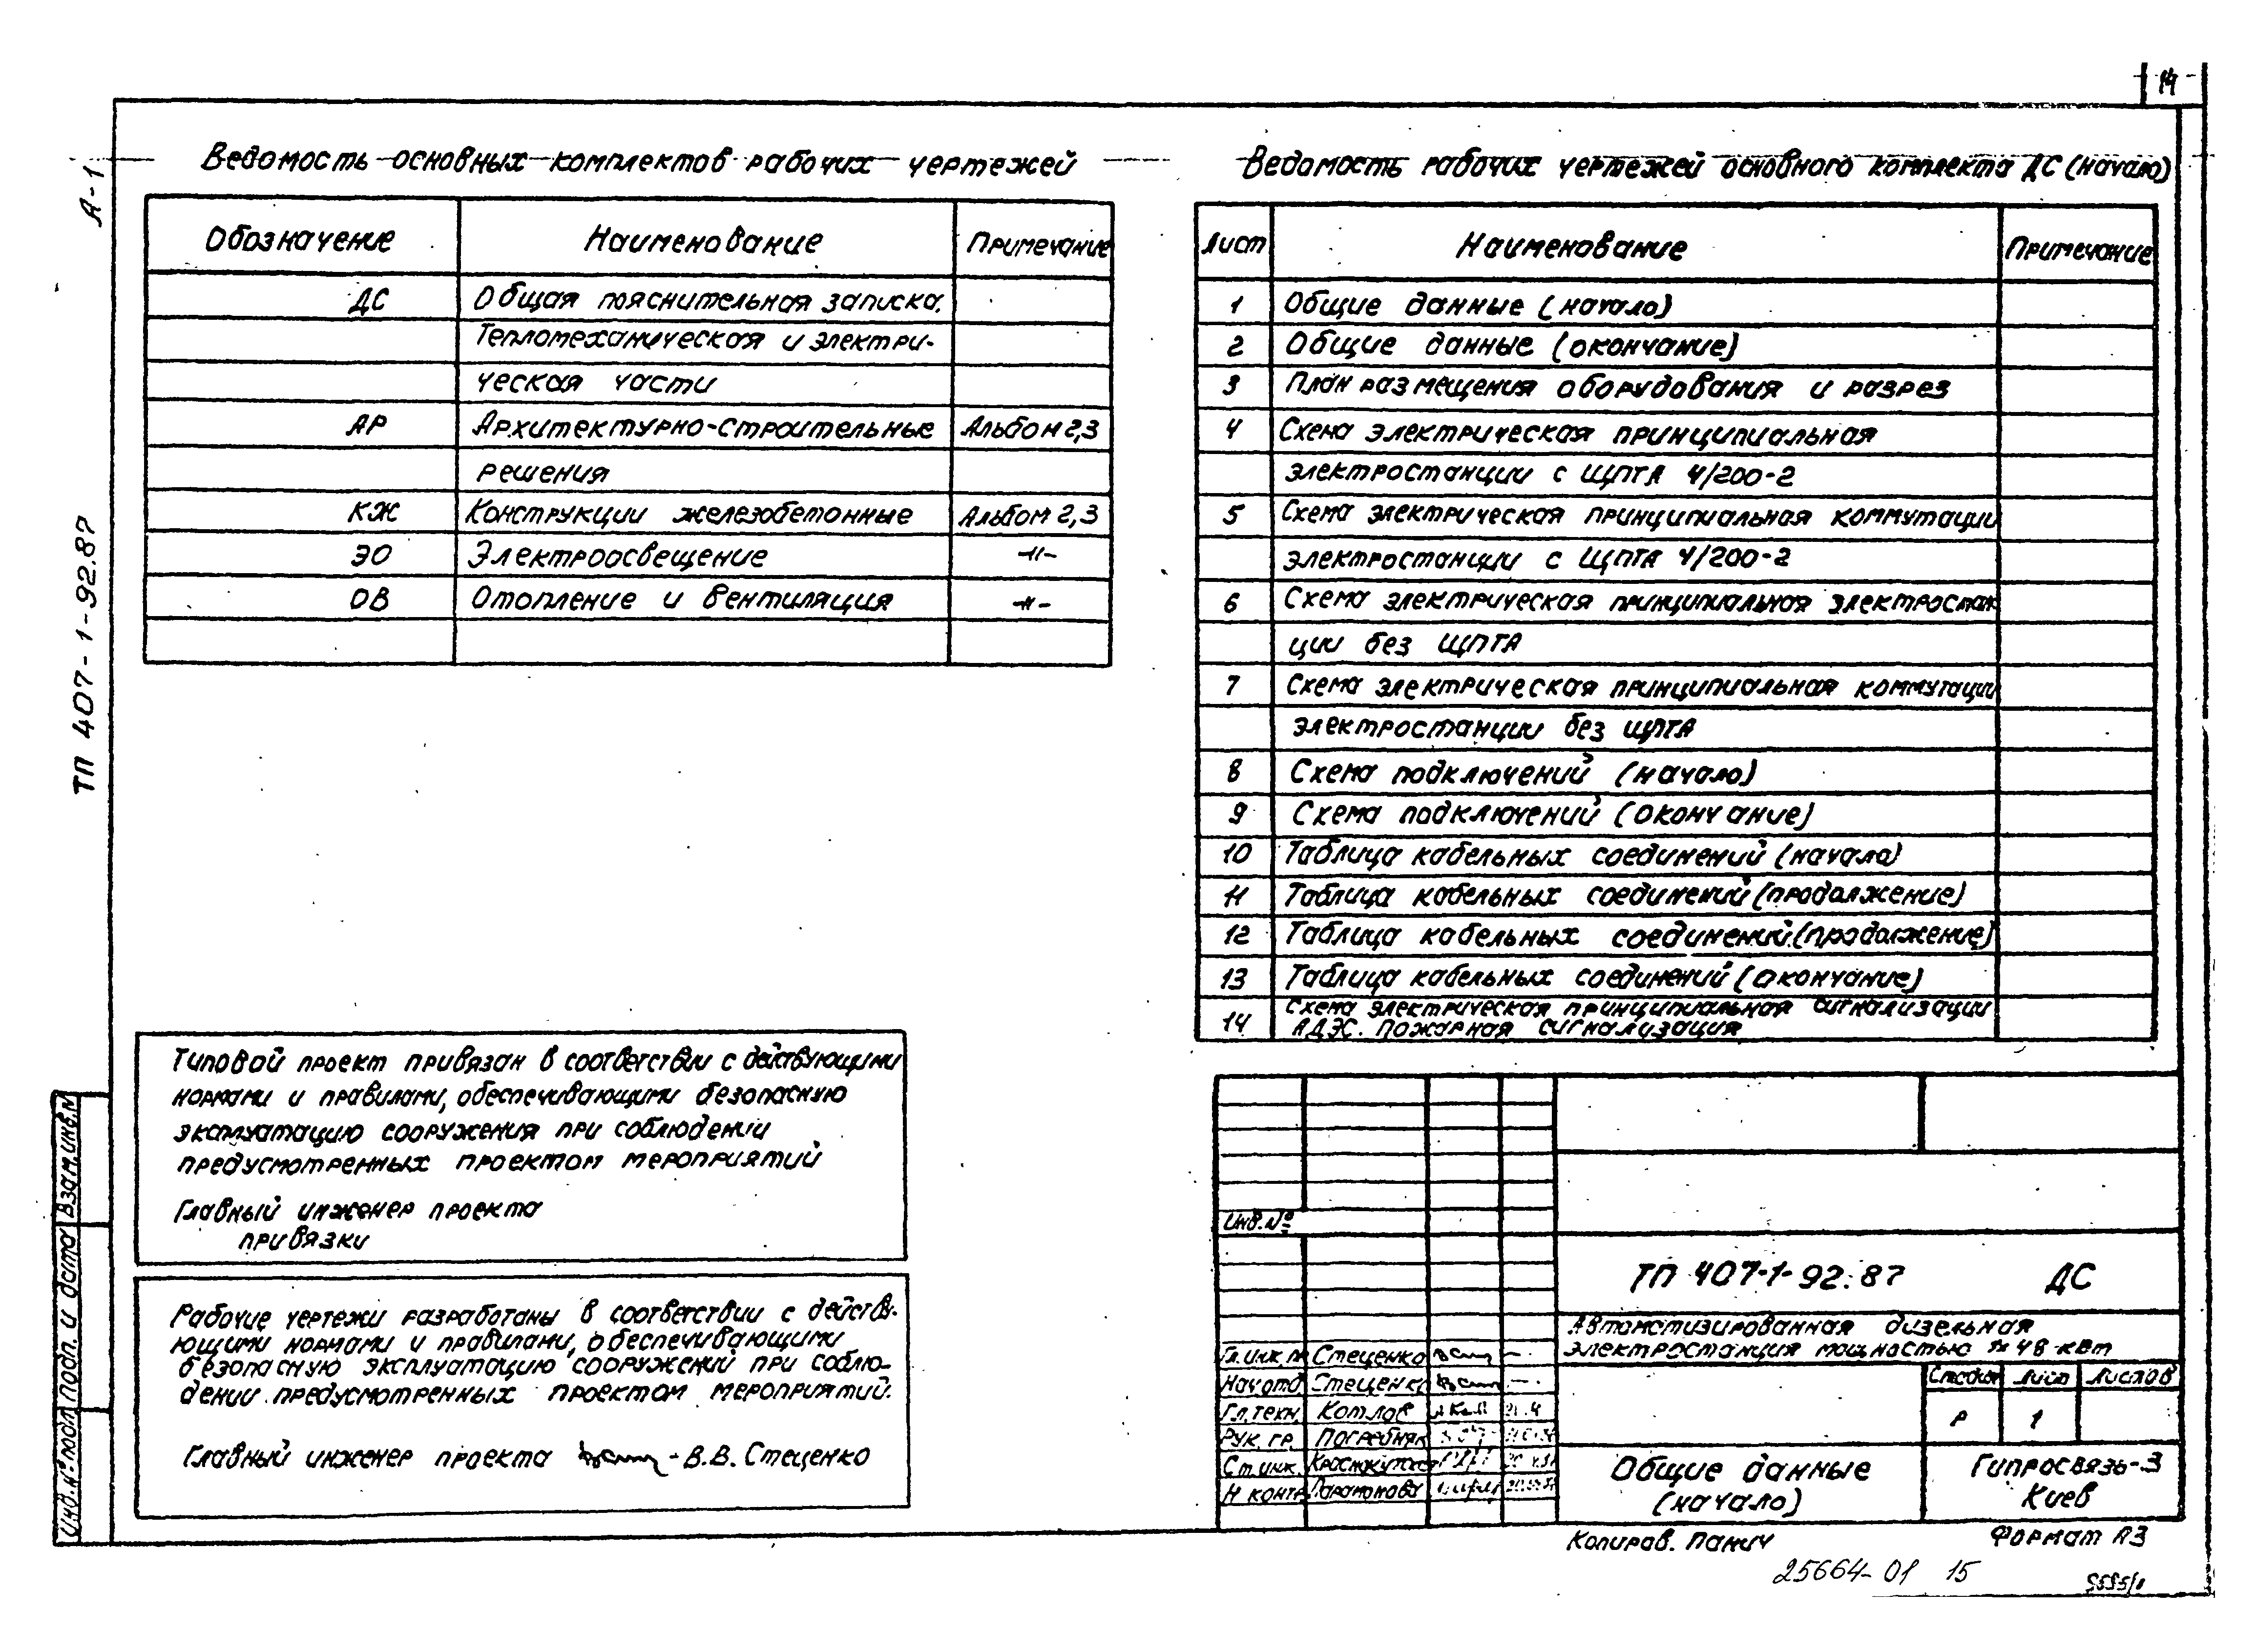 14
А-1
ТП 407-1-92.87
Ведомость основных комплектов рабочих чертежей
Обозначение Наименование Примечание
ДС Общая пояснительная записка.
Тепломеханическая и электри-
ческая части
АР Архитектурно-строительные Альбом 2,3
решения
КЖ Конструкции железобетонные Альбом 2,3
ЭО Электроосвещение -"-
ОВ Отопление и вентиляция -"-
Ведомость рабочих чертежей основного комплекта ДС (начало)
Лист Наименование Примечание
1 Общие данные (начало)
2 Общие данные (окончание)
3 План размещения оборудования и разрез
4 Схема электрическая принципиальная
электростанции с ЩПТА 4/200-2
5 Схема электрическая принципиальная коммутации
электростанции с ЩПТА 4/200-2
6 Схема электрическая принципиальная электростан
ции без ЩПТА
7 Схема электрическая принципиальная коммутации
электростанции без ЩПТА
8 Схема подключений (начало)
9 Схема подключений (окончание)
10 Таблица кабельных соединений (начало)
11 Таблица кабельных соединений (продолжение)
12 Таблица кабельных соединений (продолжение)
13 Таблица кабельных соединений (окончание)
14 Схема электрическая принципиальная сигнализации
АДЭС. Пожарная сигнализация
Типовой проект привязан в соответствии с действующими
нормами и правилами, обеспечивающими безопасную
эксплуатацию сооружения при соблюдении
предусмотренных проектом мероприятий
Главный инженер проекта
привязки
Рабочие чертежи разработаны в соответствии с действу-
ющими нормами и правилами, обеспечивающими
безопасную эксплуатацию сооружений при соблю-
дении предусмотренных проектом мероприятий.
Главный инженер проекта В.В. Стеценко
Взам.инв.№
Подп. и дата
Инв.№ подл
Инв.№
ТП 407-1-92.87 ДС
Автоматизированная дизельная
электростанция мощностью 48 кВт
Гл.инж.пр Стеценко
Нач.отд Стеценко
Гл.техн. Котлов
Рук. гр. Погребняк
Ст.инж.
Н контр Парамонова
Стадия Лист Листов
Р 1
Общие данные
(начало)
Гипросвязь-3
Киев
Копиров. Панич
Формат А3
25664-01 15